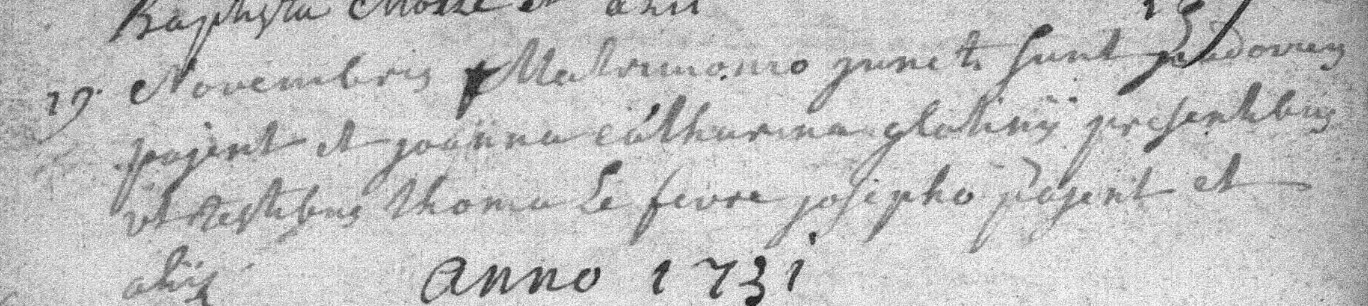 Baptista Mosse et alii
19. Novembris Matrimonio juncti Sunt
pajent et joanna catharina glatinÿ presentibus
ut testibus thoma Le fevre josepho pajent et
aliis
anno 1731